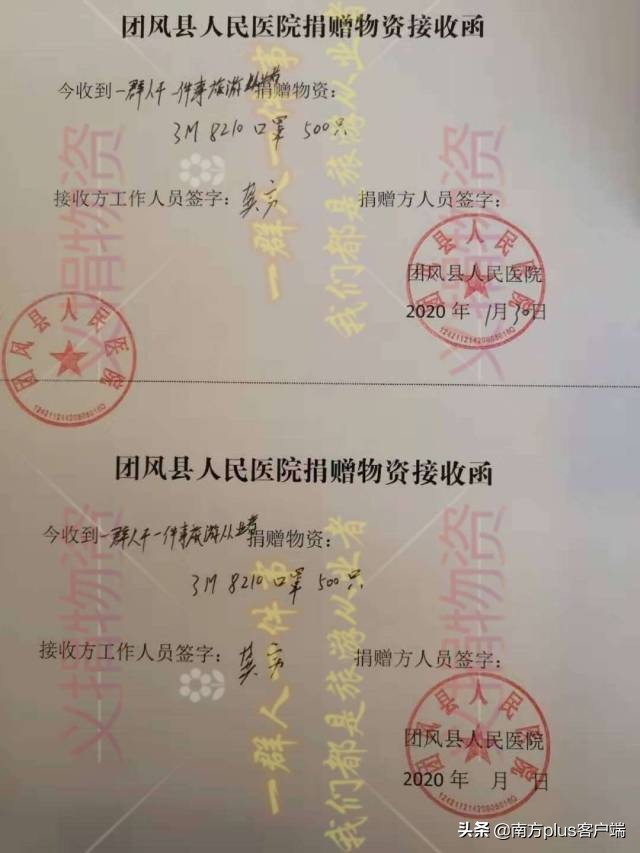 团风县人民医院捐赠物资接收函
今收到一群人干一件事旅游从业者捐赠物资：
3M 8210 口罩 500只
接收方工作人员签字：
捐赠方人员签字：
团风县人民医院
2020 年 1月30日
团风县人民医院
团风县人民医院
义捐物资
一群人一件事
我们都是旅游从业者
义捐物资
团风县人民医院捐赠物资接收函
今收到一群人干一件事旅游从业者捐赠物资：
3M 8210 口罩 500只
接收方工作人员签字：
捐赠方人员签字：
团风县人民医院
2020 年 月 日
团风县人民医院
义捐物资
一群人一件事
我们都是旅游从业者
义捐物资
头条 @南方plus客户端